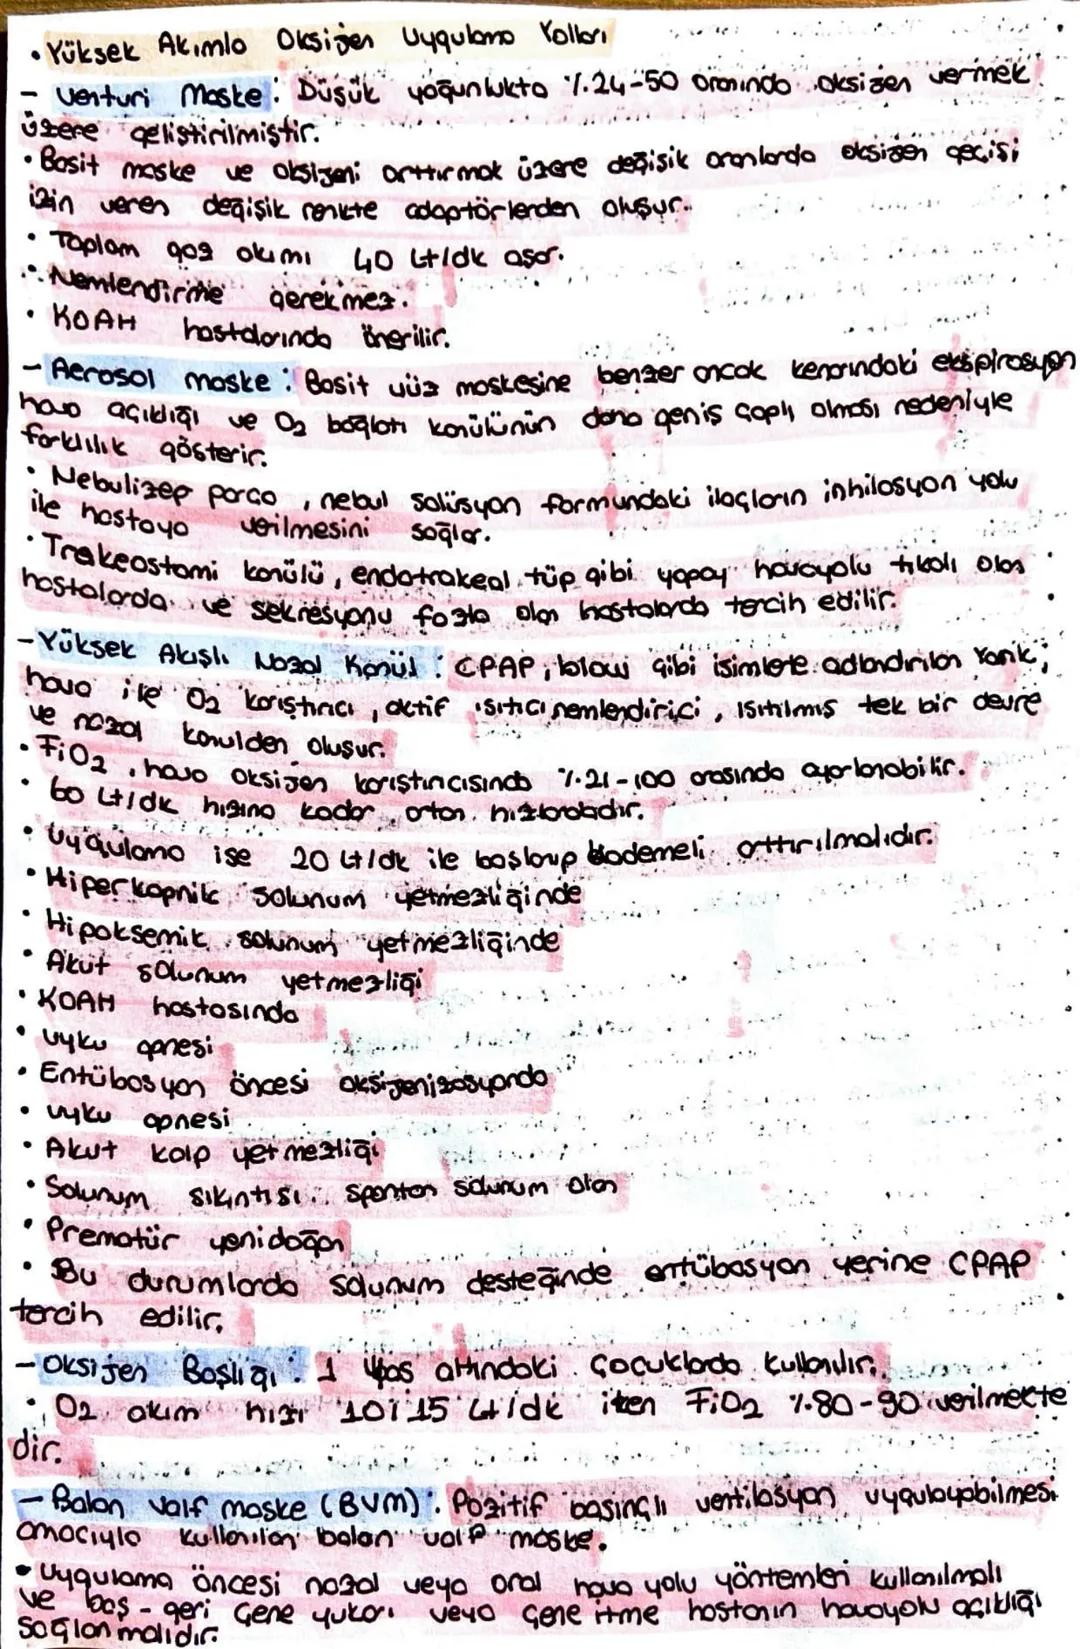 • Yüksek Akımla Oksijen Uygulama Yolları
- Venturi Maske: Düşük yoğunlukta %24-50 oranında oksijen vermek
üzere geliştirilmiştir.
• Basit maske ve oksijeni arttırmak üzere değişik oranlarda oksijen geçişi
izin veren değişik renkte adaptörlerden oluşur.
• Toplam gaz akımı 40 Lt/dk aşar.
• Nemlendirme gerekmez.
• KOAH hastalarında önerilir.
- Aerosol maske: Basit yüz maskesine benzer ancak kenarındaki ekspirasyon
hava açıklığı ve O2 bağlatı kanülünün daha geniş çaplı olması nedeniyle
farklılık gösterir.
• Nebulizep parça, nebul solüsyon formundaki ilaçların inhilasyon yolu
ile hastaya verilmesini sağlar.
• Trakeostami kanülü, endotrakeal tüp gibi yapay havayolu tıkalı olan
hastalarda ve sekresyonu fazla olan hastalarda tercih edilir.
- Yüksek Akışlı Nazal Kanül: CPAP, blow gibi isimlerle adlandırılan
hava ile O2 karıştırıcı, aktif ısıtıcı nemlendirici, ısıtılmış tek bir devre
ve nazal kanulden oluşur.
• FiO2, hava oksijen karıştırıcısında %21-100 arasında ayarlanabilir.
• 60 Lt/dk hızına kadar artan hızlardadır.
• Uygulama ise 20 Lt/dk ile başlanıp kademeli arttırılmalıdır.
• Hiperkapnik solunum yetmezliğinde
• Hipoksemik solunum yetmezliğinde
• Akut solunum yetmezliği
• KOAH hastasında
• Uyku apnesi
• Entübasyon öncesi oksijenizasyonda
• uyku apnesi
• Akut kalp yetmezliği
• Solunum sıkıntısı spontan solunum olan
• Prematür yenidoğan
• Bu durumlarda solunum desteğinde entübasyon yerine CPAP
tercih edilir.
- Oksijen Başlığı: 1 yaş altındaki çocuklarda kullanılır.
• O2 akım hızı 10-15 Lt/dk iken FiO2 %80-90 verilmekte
dir.
- Balon Valf maske (BVM): Pozitif basınçlı ventilasyon uygulayabilmesi
amacıyla kullanılan balon valf maske.
• Uygulama öncesi nazal veya oral hava yolu yöntemleri kullanılmalı
ve baş-geri çene yukarı veya çene itme hastanın havayolu açıklığı
sağlanmalıdır.